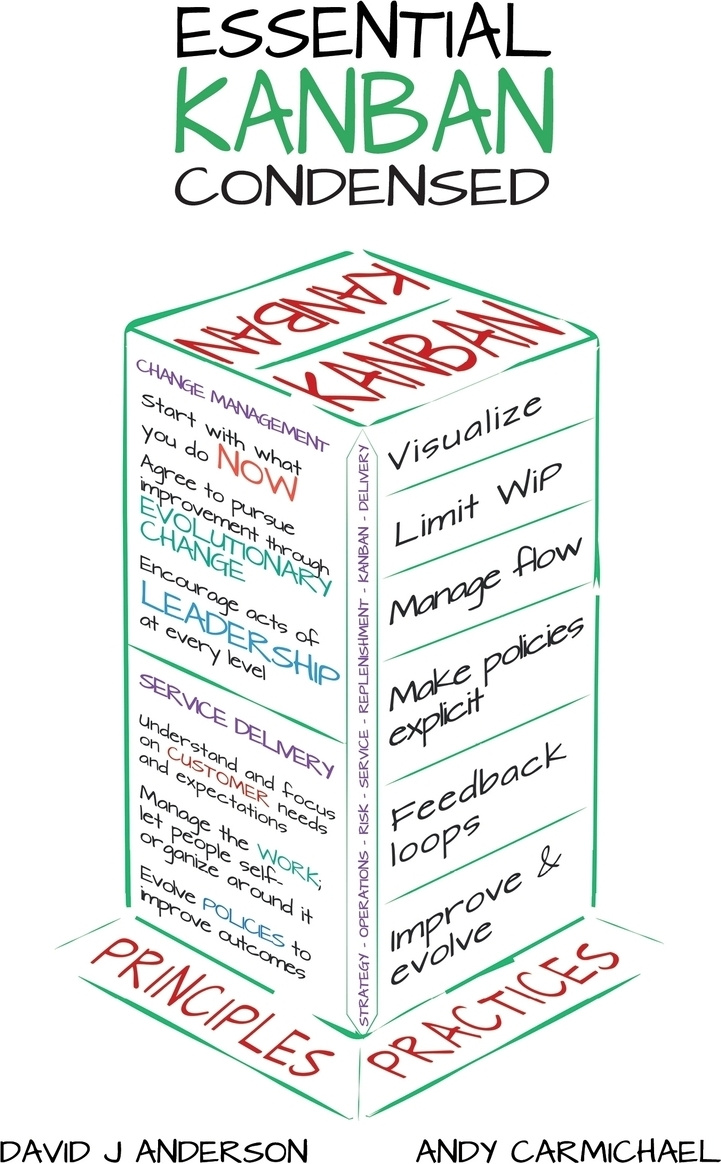 ESSENTIAL
KANBAN
CONDENSED
KANBAN
KANBAN
CHANGE MANAGEMENT
Start with what
you do NOW
Agree to pursue
improvement through
EVOLUTIONARY
CHANGE
Encourage acts of
LEADERSHIP
at every level
SERVICE DELIVERY
Understand and focus
on CUSTOMER needs
and expectations
Manage the WORK;
let people self-
organize around it
Evolve POLICIES to
improve outcomes
STRATEGY - OPERATIONS - RISK - SERVICE - REPLENISHMENT - KANBAN - DELIVERY
Visualize
Limit WiP
Manage flow
Make policies
explicit
Feedback
loops
Improve &
evolve
PRINCIPLES
PRACTICES
DAVID J ANDERSON
ANDY CARMICHAEL